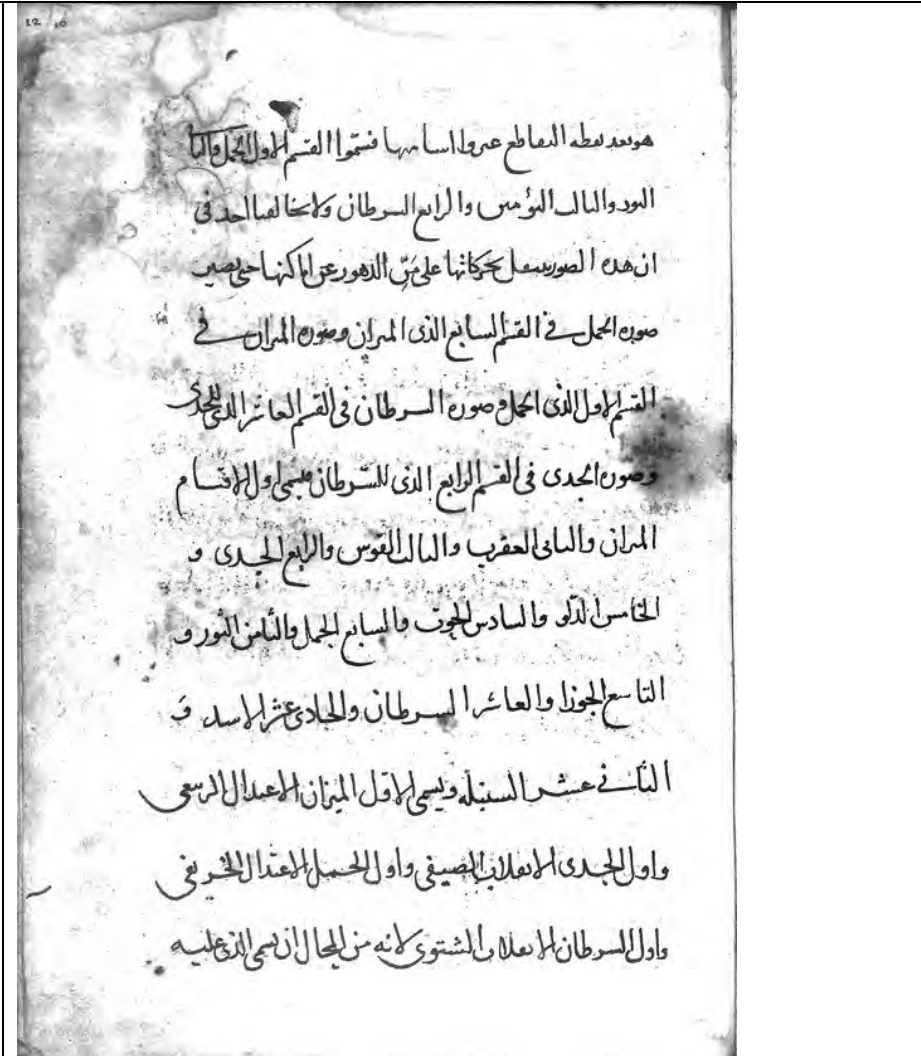 12 10
هو بعد نقطه التقاطع غيروا اسامیها فسموا القسم الاول الحمل والثا
الثور والثالث التؤمین والرابع السرطان ولا يخالفنا احد فی
ان هده الصور تنتقل بحركاتها على مَرّ الدهور عن اماكنها حتى يصير
صوره الحمل في القسم السابع الذى المیزان وصوره المیزان في
القسم الاول الذى الحمل وصوره السرطان فى القسم العاشر الذى للجدى
وصوره الجدى فى القسم الرابع الذى للسّرطان فيسمى اول الاقسام
المیزان والثانى العقرب والثالث القوس والرابع الجدى و
الخامس الدلو والسادس الحوت والسابع الحمل والثامن الثور و
التاسع الجوزا والعاشر السرطان والحادى عشر الاسد و
الثانے عشر السنبله ويسمى الاول المیزان الاعتدال الربیعى
واول الجدى الانقلاب الصيفى واول الحمل الاعتدال الخريفى
واول السرطان الانقلاب الشتوى لانه من المحال ان يسمى الذى عليه